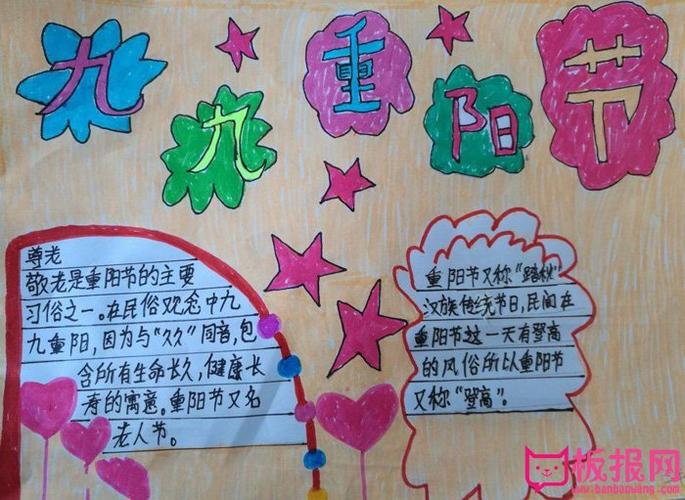 九九重阳节
尊老
敬老是重阳节的主要
习俗之一。在民俗观念中九
九重阳，因为与“久久”同音，包
含所有生命长久，健康长
寿的寓意。重阳节又名
老人节。
重阳节又称“踏秋”
汉族传统节日，民间在
重阳节这一天有登高
的风俗所以重阳节
又称“登高”。
板报网
www.banbaowang.com